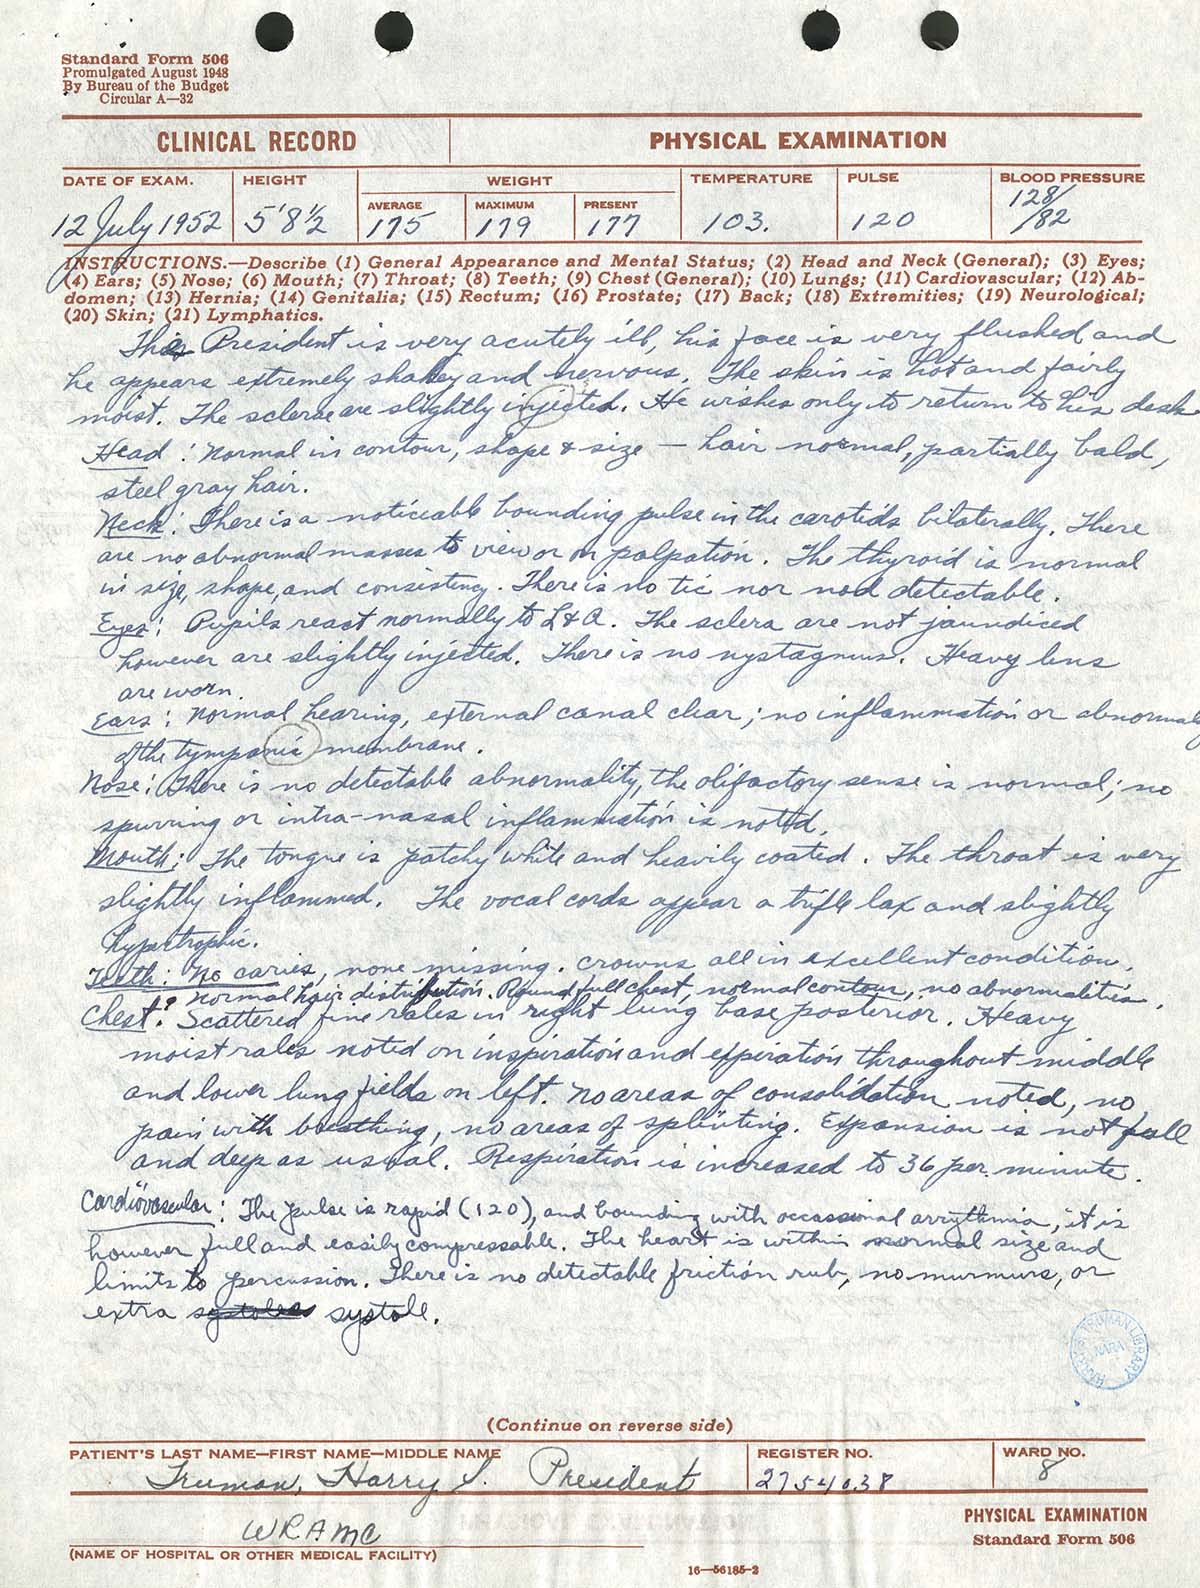 Standard Form 506
Promulgated August 1948
By Bureau of the Budget
Circular A—32
CLINICAL RECORD
PHYSICAL EXAMINATION
DATE OF EXAM.
HEIGHT
WEIGHT
TEMPERATURE
PULSE
BLOOD PRESSURE
AVERAGE
MAXIMUM
PRESENT
12 July 1952
5'8½
175
179
177
103.
120
128/82
INSTRUCTIONS.—Describe (1) General Appearance and Mental Status; (2) Head and Neck (General); (3) Eyes;
(4) Ears; (5) Nose; (6) Mouth; (7) Throat; (8) Teeth; (9) Chest (General); (10) Lungs; (11) Cardiovascular; (12) Ab-
domen; (13) Hernia; (14) Genitalia; (15) Rectum; (16) Prostate; (17) Back; (18) Extremities; (19) Neurological;
(20) Skin; (21) Lymphatics.
President is very acutely ill, his face is very flushed and
he appears extremely shakey and nervous. The skin is hot and fairly
moist. The sclerae are slightly injected. He wishes only to return to his desk
Head: Normal in contour, shape & size — hair normal, partially bald,
steel gray hair.
Neck: There is a noticeable bounding pulse in the carotids bilaterally. There
are no abnormal masses to view or on palpation. The thyroid is normal
in size, shape, and consistency. There is no tic nor nod detectable.
Eyes: Pupils react normally to L & A. The sclera are not jaundiced
however are slightly injected. There is no nystagmus. Heavy lens
are worn.
Ears: Normal hearing, external canal clear; no inflammation or
of the tympanic membrane.
Nose: There is no detectable abnormality, the olifactory sense is normal; no
spurring or intra-nasal inflammation is noted.
Mouth: The tongue is patchy white and heavily coated. The throat is very
slightly inflammed. The vocal cords appear a trifle lax and slightly
hypertrophic.
Teeth: No caries, none missing. crowns all in excellent condition.
Normal hair distribution. Round full chest, normal contour, no abnormalities.
Chest: Scattered fine rales in right lung base posterior. Heavy
moist rales noted on inspiration and expiration throughout middle
and lower lung fields on left. No areas of consolidation noted, no
pain with breathing, no areas of splinting. Expansion is not full
and deep as usual. Respiration is increased to 36 per minute.
Cardiovascular: The pulse is rapid (120), and bounding with occassional arrythmia, it is
however full and easily compressable. The heart is within normal size and
limits to percussion. There is no detectable friction rub, no murmurs, or
extra systole.
HARRY S. TRUMAN LIBRARY
NARA
(Continue on reverse side)
PATIENT'S LAST NAME—FIRST NAME—MIDDLE NAME
REGISTER NO.
WARD NO.
Truman, Harry S. President
2754038
8
PHYSICAL EXAMINATION
Standard Form 506
WRAMC
(NAME OF HOSPITAL OR OTHER MEDICAL FACILITY)
16—56185-2